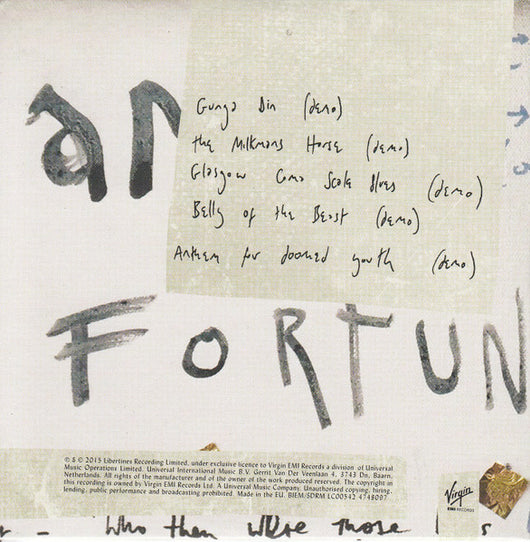 an
Gunga Din (demo)
the Milkmans Horse (demo)
Glasgow Coma Scale Blues (demo)
Belly of the Beast (demo)
Anthem for doomed youth (demo)
FORTUN
℗ & © 2015 Libertines Recording Limited, under exclusive licence to Virgin EMI Records a division of Universal
Music Operations Limited. Universal International Music B.V. Gerrit Van Der Veenlaan 4, 3743 Dn, Baarn,
Netherlands. All rights of the manufacturer and of the owner of the work produced reserved. The copyright in
this recording is owned by Virgin EMI Records Ltd. A Universal Music Company. Unauthorised copying, hiring,
lending, public performance and broadcasting prohibited. Made in the EU. BIEM/SDRM LC00542 4748087
Virgin
EMI RECORDS
Who then were those